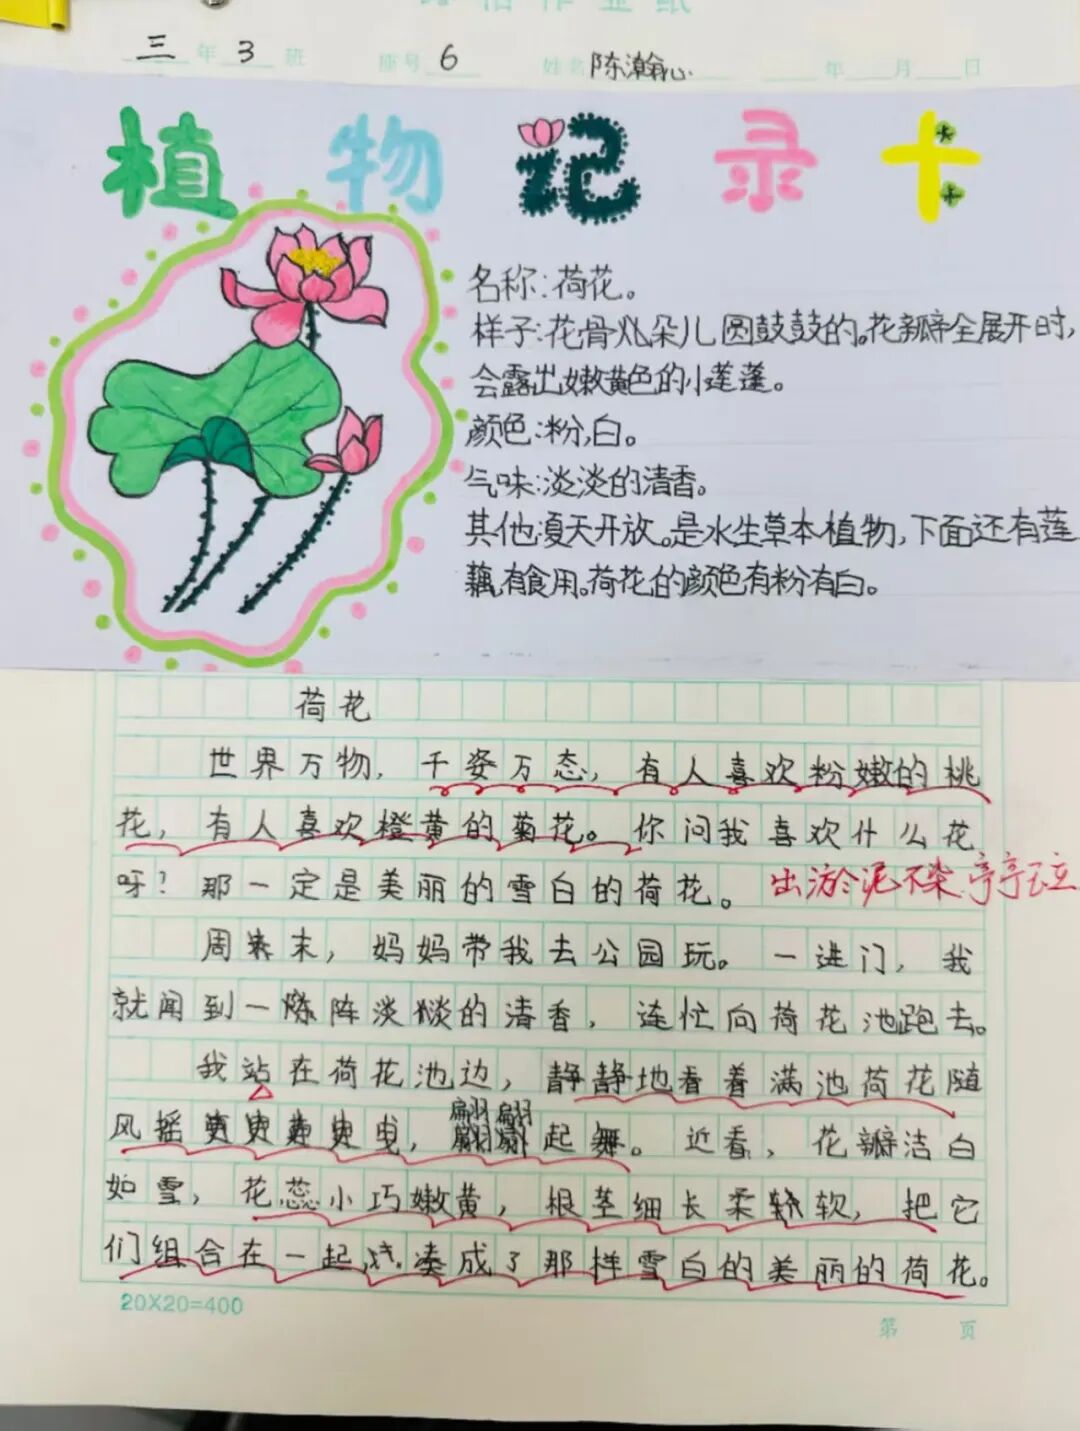 三年3班 座号6 姓名陈瀚心 年 月 日
植物记录卡
名称:荷花。
样子:花骨朵儿圆鼓鼓的。花瓣全展开时,
会露出嫩黄色的小莲蓬。
颜色:粉,白。
气味:淡淡的清香。
其他:夏天开放。是水生草本植物,下面还有莲
藕,有食用。荷花的颜色有粉有白。
荷花
世界万物,千姿万态,有人喜欢粉嫩的桃
花,有人喜欢橙黄的菊花。你问我喜欢什么花
呀?那一定是美丽的雪白的荷花。
出淤泥不染 亭亭玉立
周末,妈妈带我去公园玩。一进门,我
就闻到一阵阵淡淡的清香,连忙向荷花池跑去。
我站在荷花池边,静静地看着满池荷花随
风摇曳,翩翩起舞。近看,花瓣洁白
如雪,花蕊小巧嫩黄,根茎细长柔软,把它
们组合在一起,凑成了那样雪白的美丽的荷花。
20X20=400
第 页